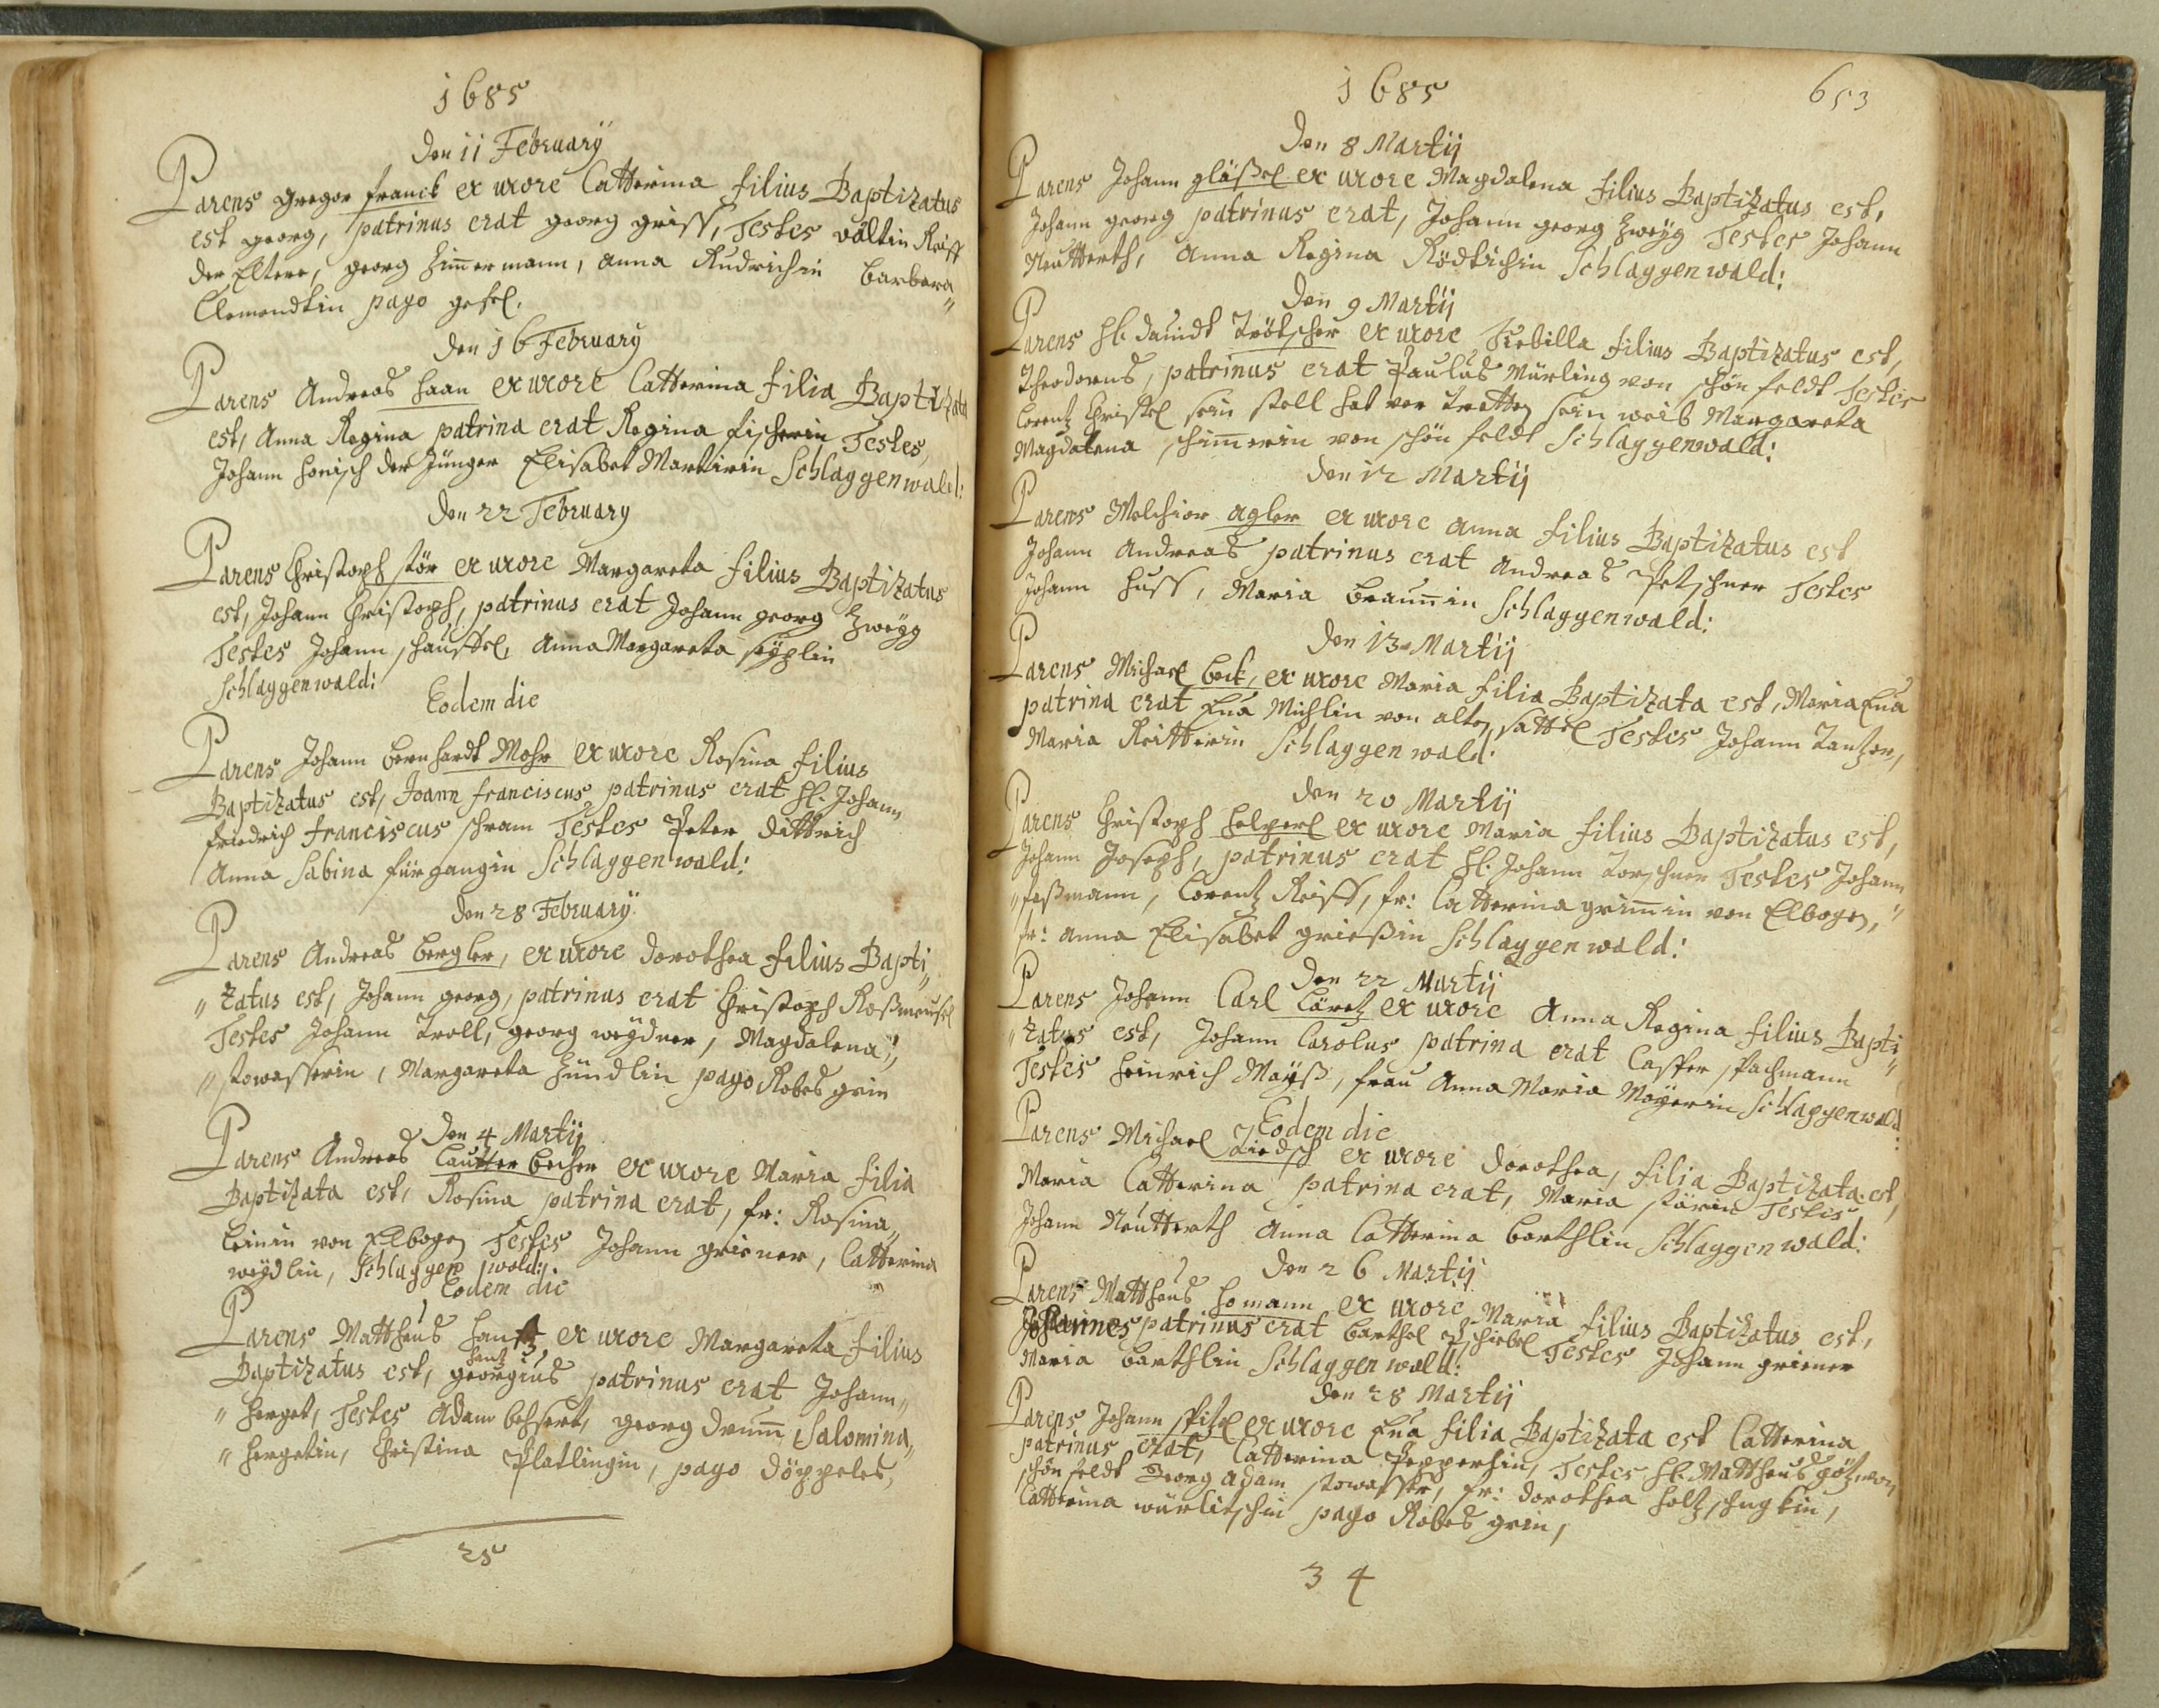 1685
Den 11 February
Parens gregor franck ex uxore Catterina filius Baptizatus
est georg, patrinus erat georg griss, Testes valtin Reiss
der Eltere, georg Zim̄ermann, anna Rudrichin barbara
Clementin pago gefel.
den 16 February
Parens Andreas haan ex uxore Catterina filia Baptizata
est, Anna Regina patrina erat Regina fischerin Testes,
Johann honisch der Jünger Elisabet Martirin Schlaggenwald:
Den 22 February
Parens Christoph stör ex uxore Margareta filius Baptizatus
est, Johann Christoph, patrinus erat Johann georg Zweyg
Testes Johann schaussel, Anna Margareta
Schlaggenwald:
Eodem die
Parens Johann bernhardt Mohr ex uxore Rosina filius
Baptizatus est, Joann franciscus patrinus erat hl: Johann
friedrich franciscus schram Testes Peter dittrich
Anna Sabina fürgangin Schlaggenwald:
Den 28 February
Parens Andreas bergler, ex uxore dorothea filius Bapti„
„zatus est, Johann georg, patrinus erat Christoph Roßmeusel
Testes Johann Troll, georg weydner, Magdalena„
„stowasserin, Margareta Hündlin pago Robesgrin
den 4 Martij
Parens Andreas Lautterbecher ex uxore Maria filia
Baptizata est, Rosina patrina erat, fr: Rosina„
Leinin von Elbogen Testes Johann griener, Catterina
weydlin, Schlaggenwald:
Eodem die
Parens Mattheus ex uxore Margareta filius
hantz
Baptizatus est, georgius patrinus erat Johann„
„herget, Testes Adam georg drum̄ Salomina„
„hergetin, Christina Platlingin, pago döppeles,
25
1685
653
Den 8 Martij
Parens Johann gläßel ex uxore Magdalena filius Baptizatus est,
Johann georg patrinus erat, Johann georg Zweyg Testes Johann
Neutterth, Anna Regina Rödtichin Schlaggenwald:
Den 9 Martij
Parens hl: dauidt Trötscher ex uxore filius Baptizatus est,
Theodorus, patrinus erat Paulus Mürling von schönfeldt Testes
Lorentz Christel sein stell hat ver tretten sein weib Margareta
Magdalena schim̄erin von schönfeldt Schlaggenwald:
den 12 Martij
Parens Melchior agler ex uxore anna filius Baptizatus est
Johann Andreas patrinus erat Andreas Petschner Testes
Johann huss, Maria braun̄in Schlaggenwald:
Den 13 Martij
Parens Michael beck, ex uxore Maria filia Baptizata est, Maria Eua
patrina erat Eua Michlin von alten sattel Testes Johann Tantzer,
Maria Reitterin Schlaggenwald:
den 20 Martij
Parens Christoph helperl ex uxore Maria filius Baptizatus est,
Johann Joseph, patrinus erat hl: Johann Torschner Testes Johann
„foßmann, Lorentz Reiss, fr: Catterina grim̄in von Elbogen,
fr: anna Elisabet grießin Schlaggenwald:
Den 22 Martij
Parens Johann Carl Läretz ex uxore Anna Regina filius Bapti
„zatus est, Johann Carolus patrina erat Casper Pachmann
Testes heinrich Mayß, frau Anna Maria Mayerin Schlaggenwald
Eodem die
Parens Michael Zietsch ex uxore dorothea, filia Baptizata est,
Maria Catterina patrina erat, Maria störin Testes
Johann Neutterth Anna Catterina barthlin Schlaggenwald:
Den 26 Martij
Parens Mattheus homann ex uxore Maria filius Baptizatus est,
Johannes patrinus erat barthel Pschiebl Testes Johann griener
Maria barthlin Schlaggenwald:
den 28 Martij
Parens Johann spitzl ex uxore Eua filia Baptizata est Catterina
patrinus erat, Catterina Pepperhin, Testes hl: Mattheus götz von
schönfeldt Georg adam stowasser, fr: dorothea
Catterina würlitschin pago Robesgrin,
34